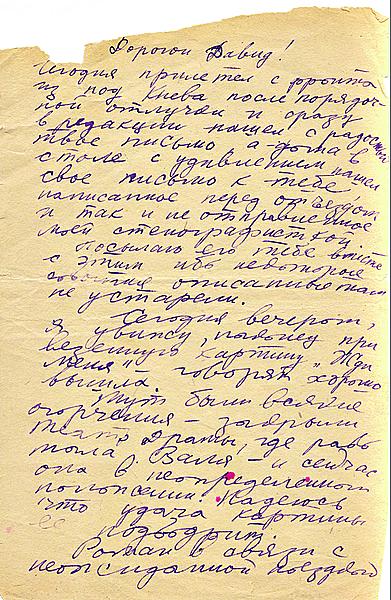 Дорогой Давид!
Сегодня прилетел с фронта
из под Киева после порядоч-
ной отлучки и сразу
в редакции нашел с радостью
твое письмо а дома в
столе с удивлением нашел
свое письмо к тебе
написанное перед отъездом
и так и не отправленное
моей стенографисткой.
Посылаю его тебе вместе
с этим ибо некоторые
события описанные там
не устарели.
Сегодня вечером,
я увижу, наконец при
везенную картину „Жди
меня" вышла говорят хорошо
Тут были всякие
огорчения – закрыли
театр Драмы, где рабо
тала Валя – и сейчас
она в неопределенном
положении. Надеюсь
что удача картины
ее подбодрит.
Роман в связи с
неожиданной поездкой